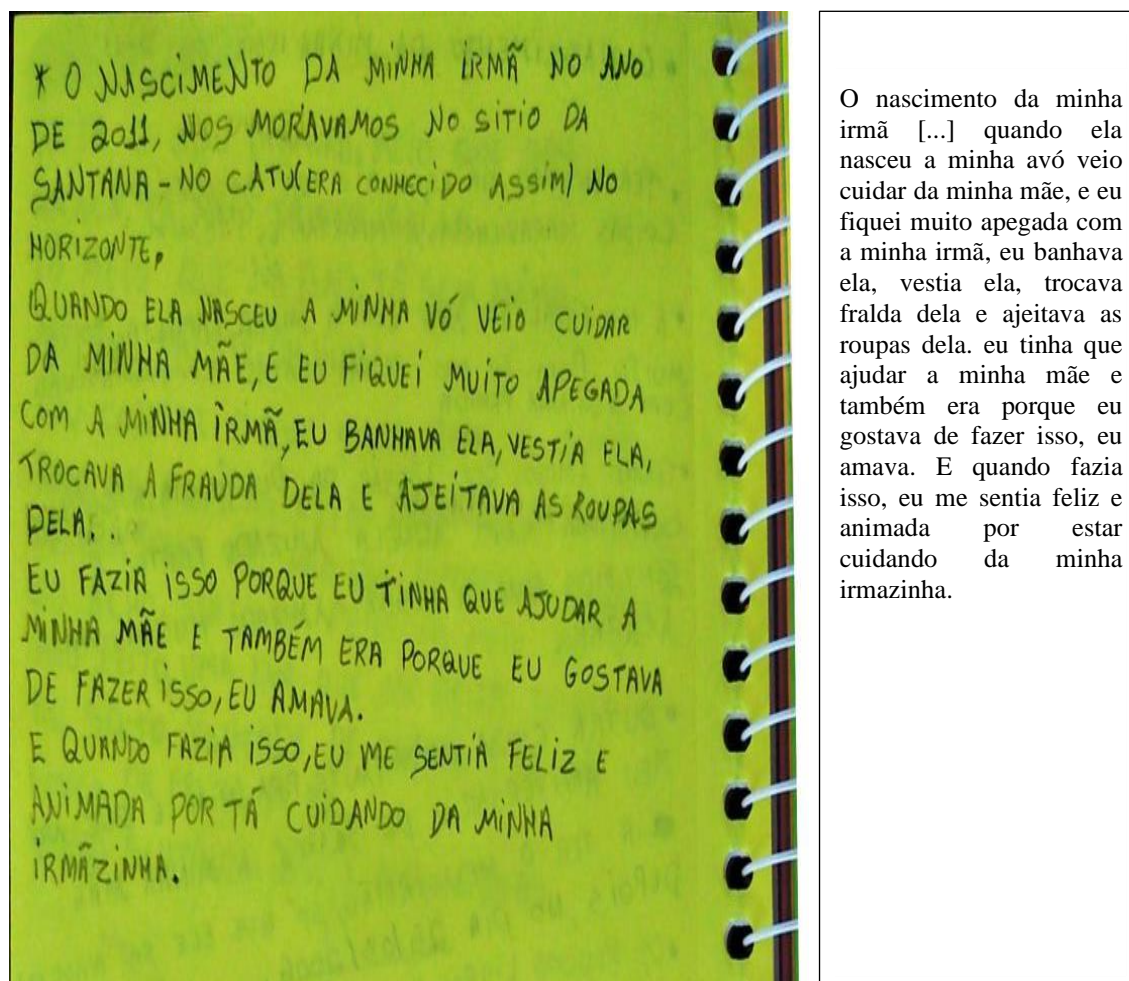 * O NASCIMENTO DA MINHA IRMÃ NO ANO
DE 2011, NOS MORAVAMOS NO SITIO DA
SANTANA - NO CATU(ERA CONHECIDO ASSIM) NO
HORIZONTE,
QUANDO ELA NASCEU A MINHA VÓ VEIO CUIDAR
DA MINHA MÃE, E EU FIQUEI MUITO APEGADA
COM A MINHA IRMÃ, EU BANHAVA ELA, VESTIA ELA,
TROCAVA A FRAUDA DELA E AJEITAVA AS ROUPAS
DELA..
EU FAZIA ISSO PORQUE EU TINHA QUE AJUDAR A
MINHA MÃE E TAMBÉM ERA PORQUE EU GOSTAVA
DE FAZER ISSO, EU AMAVA.
E QUANDO FAZIA ISSO, EU ME SENTIA FELIZ E
ANIMADA POR TÁ CUIDANDO DA MINHA
IRMÃZINHA.
O nascimento da minha
irmã [...] quando ela
nasceu a minha avó veio
cuidar da minha mãe, e eu
fiquei muito apegada com
a minha irmã, eu banhava
ela, vestia ela, trocava
fralda dela e ajeitava as
roupas dela. eu tinha que
ajudar a minha mãe e
também era porque eu
gostava de fazer isso, eu
amava. E quando fazia
isso, eu me sentia feliz e
animada por estar
cuidando da minha
irmazinha.